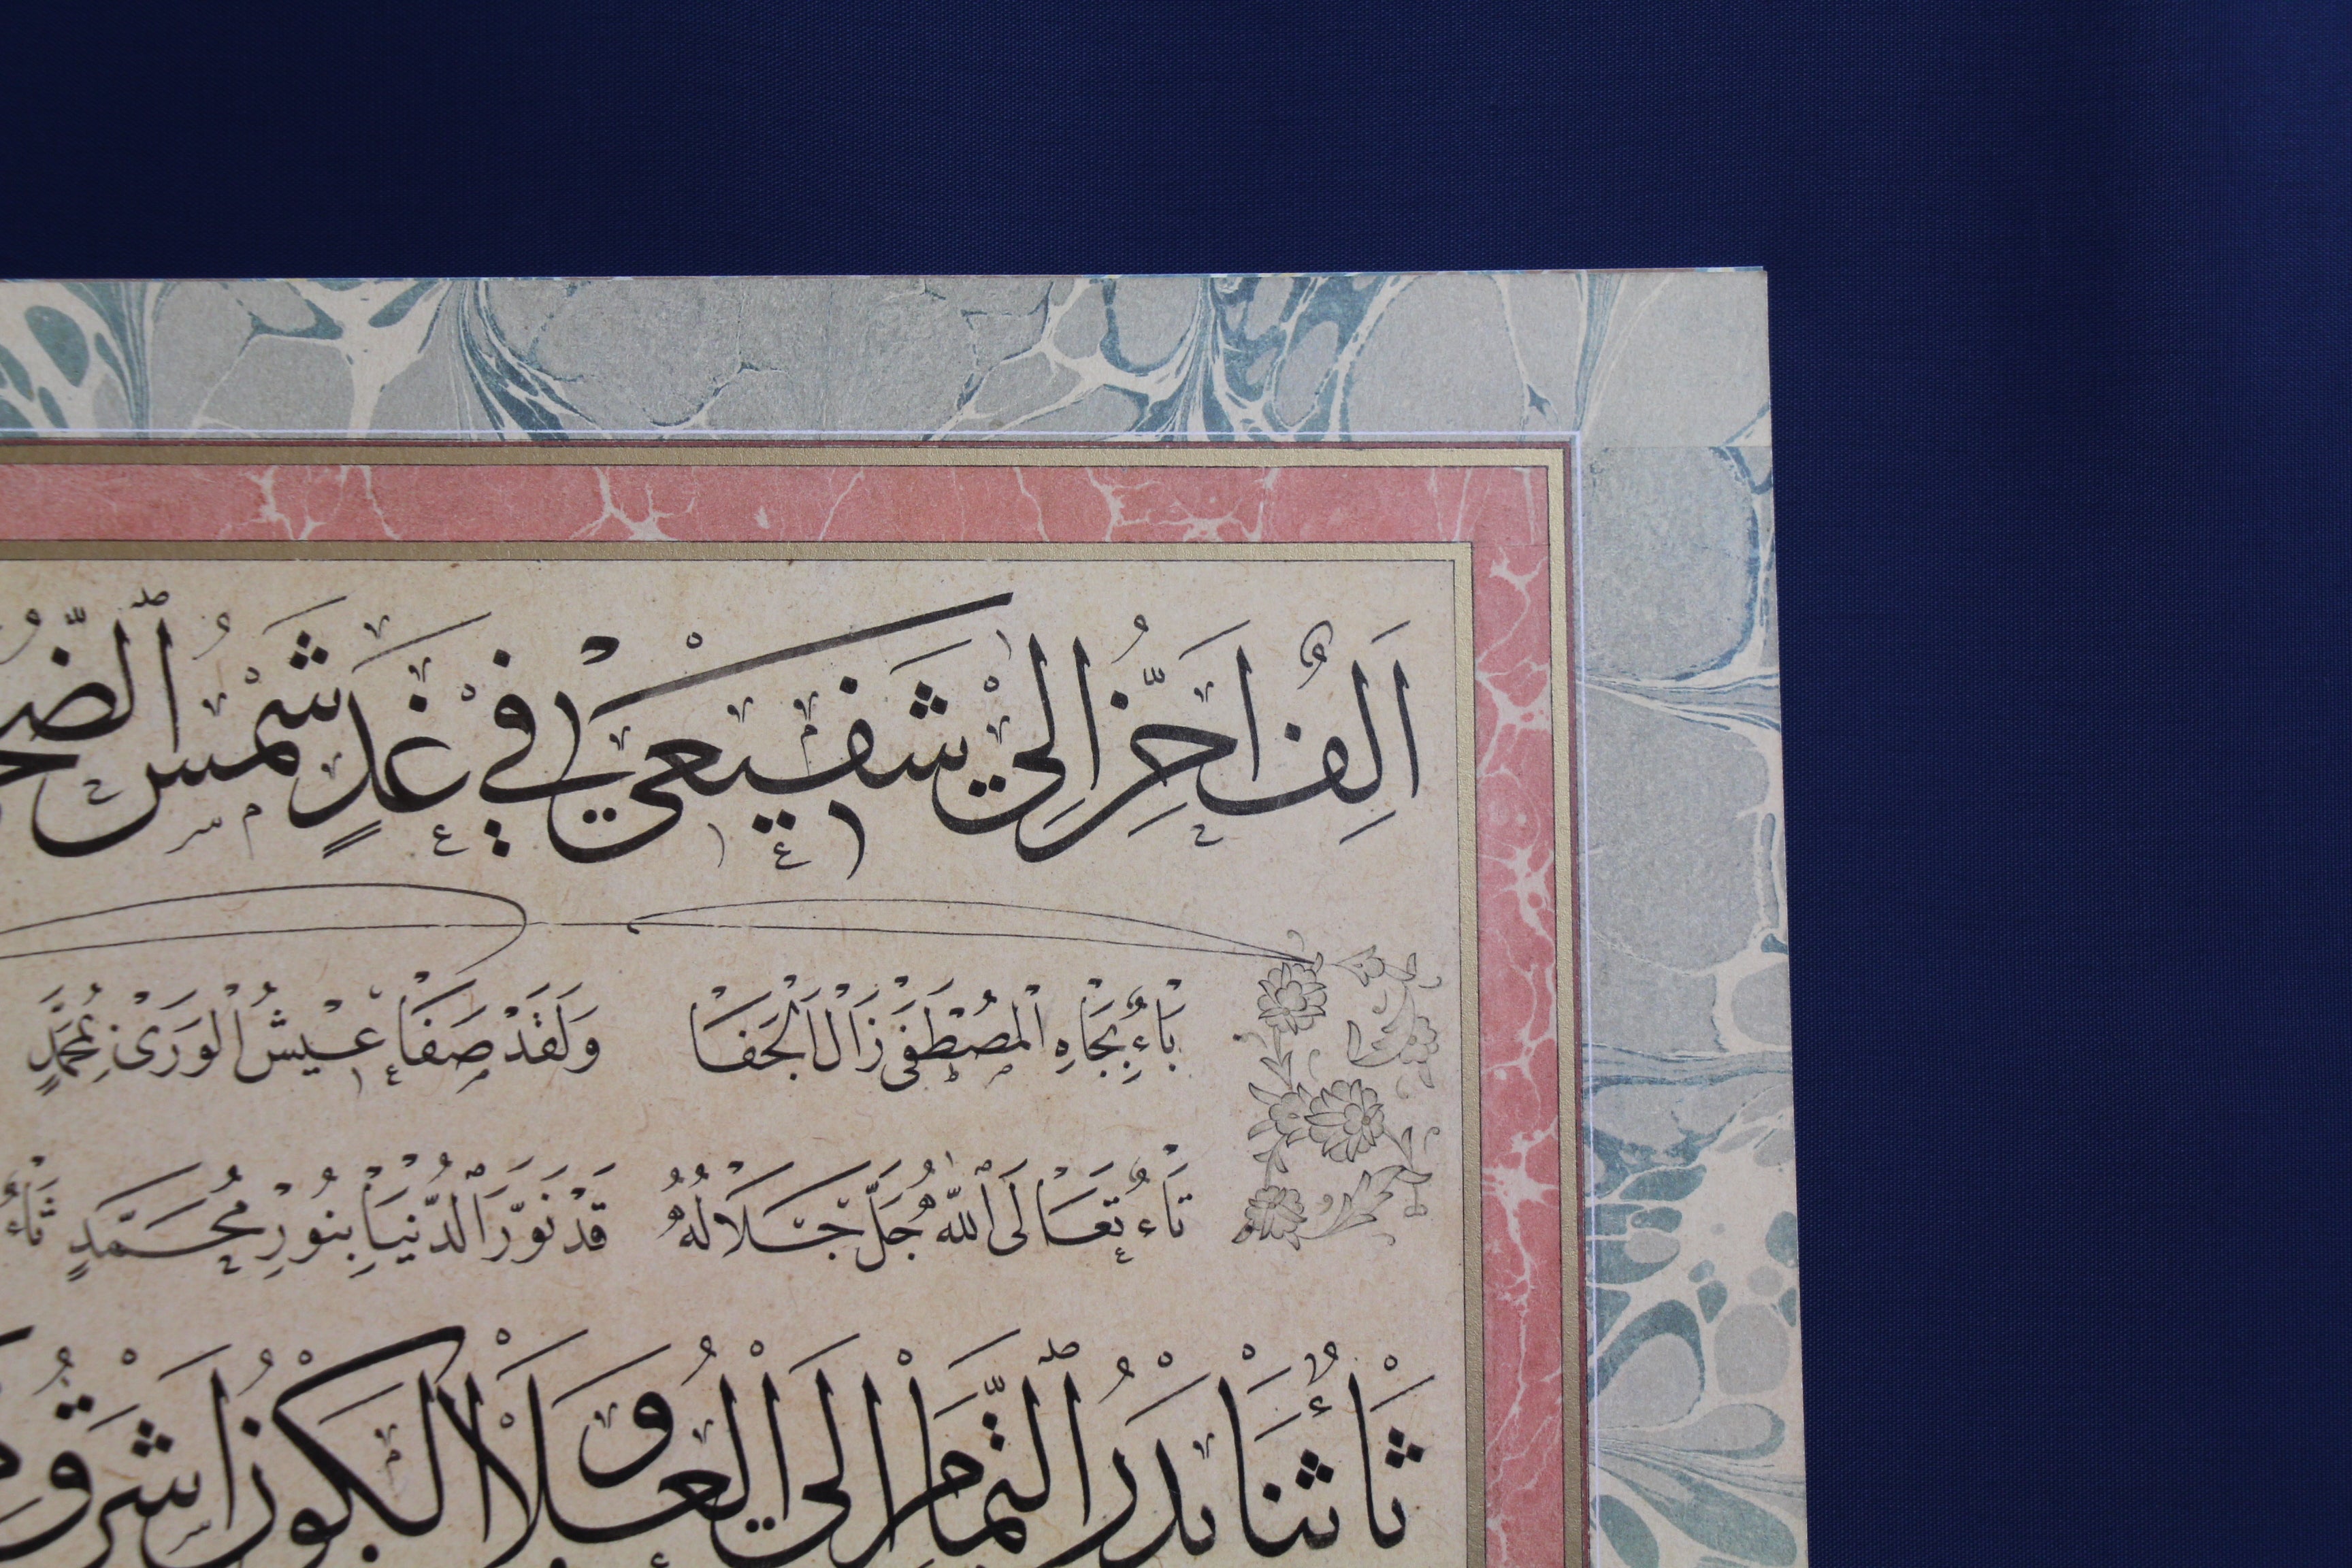 اَلِفٌ اَحِنُّ اِلٰى شَفِيْعِيْ فِيْ غَدٍ شَمْسُ ٱلضُّحٰى
بَاءٌ بِجَاهِ الْمُصْطَفَى زَالَ الْجَفَا وَلَقَدْ صَفَا عَيْشُ الْوَرَى بِمُحَمَّدٍ
تَاءٌ تَعَالَى ٱللّٰهُ جَلَّ جَلَالُهُ قَدْ نَوَّرَ ٱلدُّنْيَا بِنُورِ مُحَمَّدٍ ثَاءٌ
ثَاءٌ ثَنَا بَدْرُ ٱلتَّمَامِ اِلَى الْعُلَا وَالْكَوْنُ اَشْرَقَ